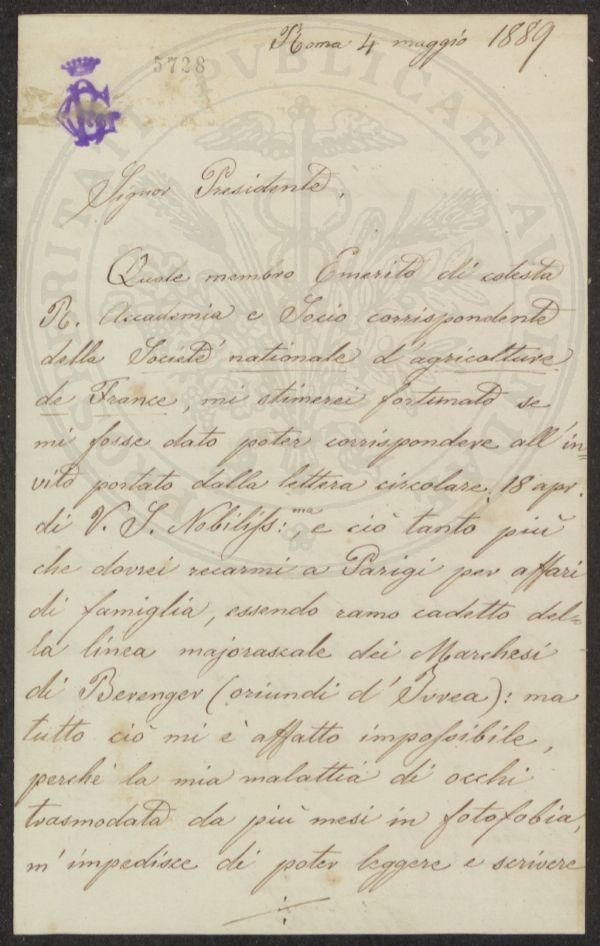 Roma 4 maggio 1889
5728
Signor Presidente,
Quale membro Emerito di cotesta
R. Accademia e Socio corrispondente
della Société nationale d'agricolture
de France, mi stimerei fortunato se
mi fosse dato poter corrispondere all'in=
vito portato dalla lettera circolare, 18 apr.
di V. S. Nobiliss:ma, e ciò tanto più
che dovrei recarmi a Parigi per affari
di famiglia, essendo ramo cadetto del=
la linea majorascale dei Marchesi
di Berenger (oriundi d'Ivrea): ma
tutto ciò mi è affatto impossibile,
perché la mia malattia di occhi
trasmodata da più mesi in fotofobia,
m'impedisce di poter leggere e scrivere